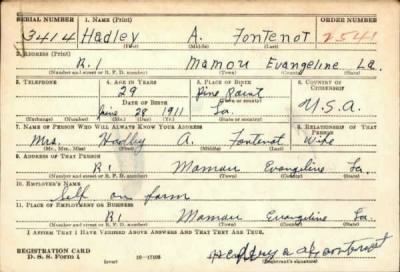 SERIAL NUMBER 1. NAME (Print) ORDER NUMBER
3414 Hadley A. Fontenot 2541
(First) (Middle) (Last)
2. ADDRESS (Print)
R.1 Mamou Evangeline La.
(Number and street or R. F. D. number) (Town) (County) (State)
3. TELEPHONE 4. AGE IN YEARS 5. PLACE OF BIRTH 6. COUNTRY OF CITIZENSHIP
29 Pine Point
DATE OF BIRTH (Town or county)
June 28 1911 La. U.S.A.
(Exchange) (Number) (Mo.) (Day) (Yr.) (State or country)
7. NAME OF PERSON WHO WILL ALWAYS KNOW YOUR ADDRESS 8. RELATIONSHIP OF THAT PERSON
Mrs. Hadley A. Fontenot Wife
(Mr., Mrs., Miss) (First) (Middle) (Last)
9. ADDRESS OF THAT PERSON
R1 Mamou Evangeline La.
(Number and street or R. F. D. number) (Town) (County) (State)
10. EMPLOYER'S NAME
Self on farm
11. PLACE OF EMPLOYMENT OR BUSINESS
R1 Mamou Evangeline La.
(Number and street or R. F. D. number) (Town) (County) (State)
I AFFIRM THAT I HAVE VERIFIED ABOVE ANSWERS AND THAT THEY ARE TRUE.
REGISTRATION CARD
D. S. S. Form 1 (over) 16—17105 (Registrant's signature)